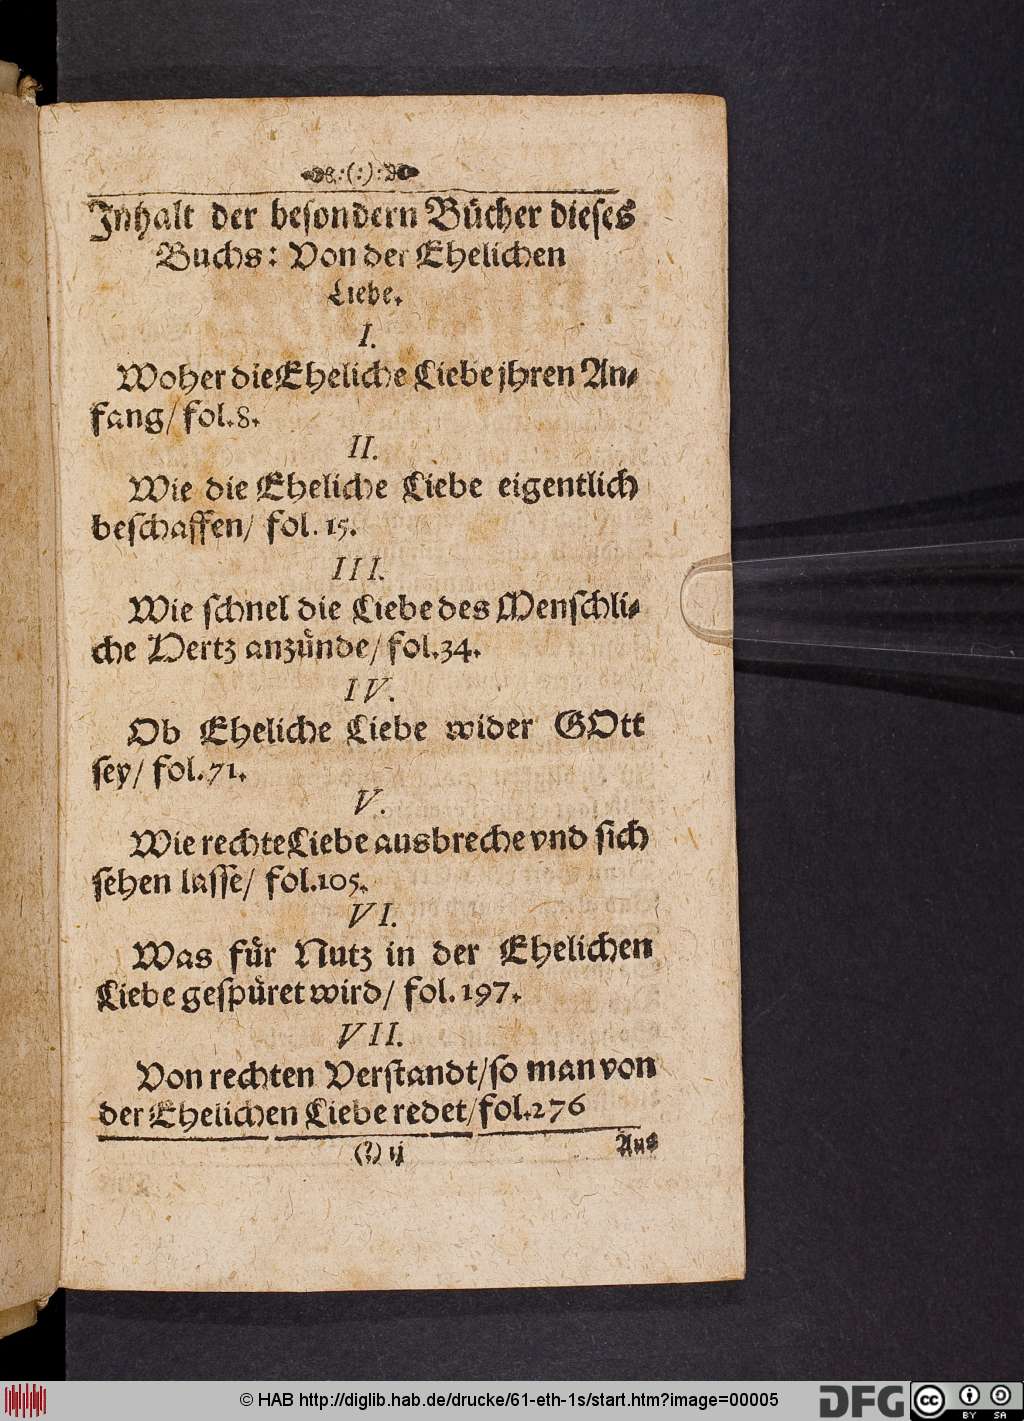 Inhalt der besondern Bücher dieses
Buchs: Von der Ehelichen
Liebe.
I.
Woher die Eheliche Liebe jhren An-
fang/ fol. 8.
II.
Wie die Eheliche Liebe eigentlich
beschaffen/ fol. 15.
III.
Wie schnel die Liebe des Menschli-
che Hertz anzünde/ fol. 34.
IV.
Ob Eheliche Liebe wider GOtt
sey/ fol. 71.
V.
Wie rechte Liebe ausbreche vnd sich
sehen lasse/ fol. 105.
VI.
Was für Nutz in der Ehelichen
Liebe gespüret wird/ fol. 197.
VII.
Von rechten Verstandt/ so man von
der Ehelichen Liebe redet/ fol. 276
(?) ij Aus
© HAB http://diglib.hab.de/drucke/61-eth-1s/start.htm?image=00005
DFG
cc BY SA